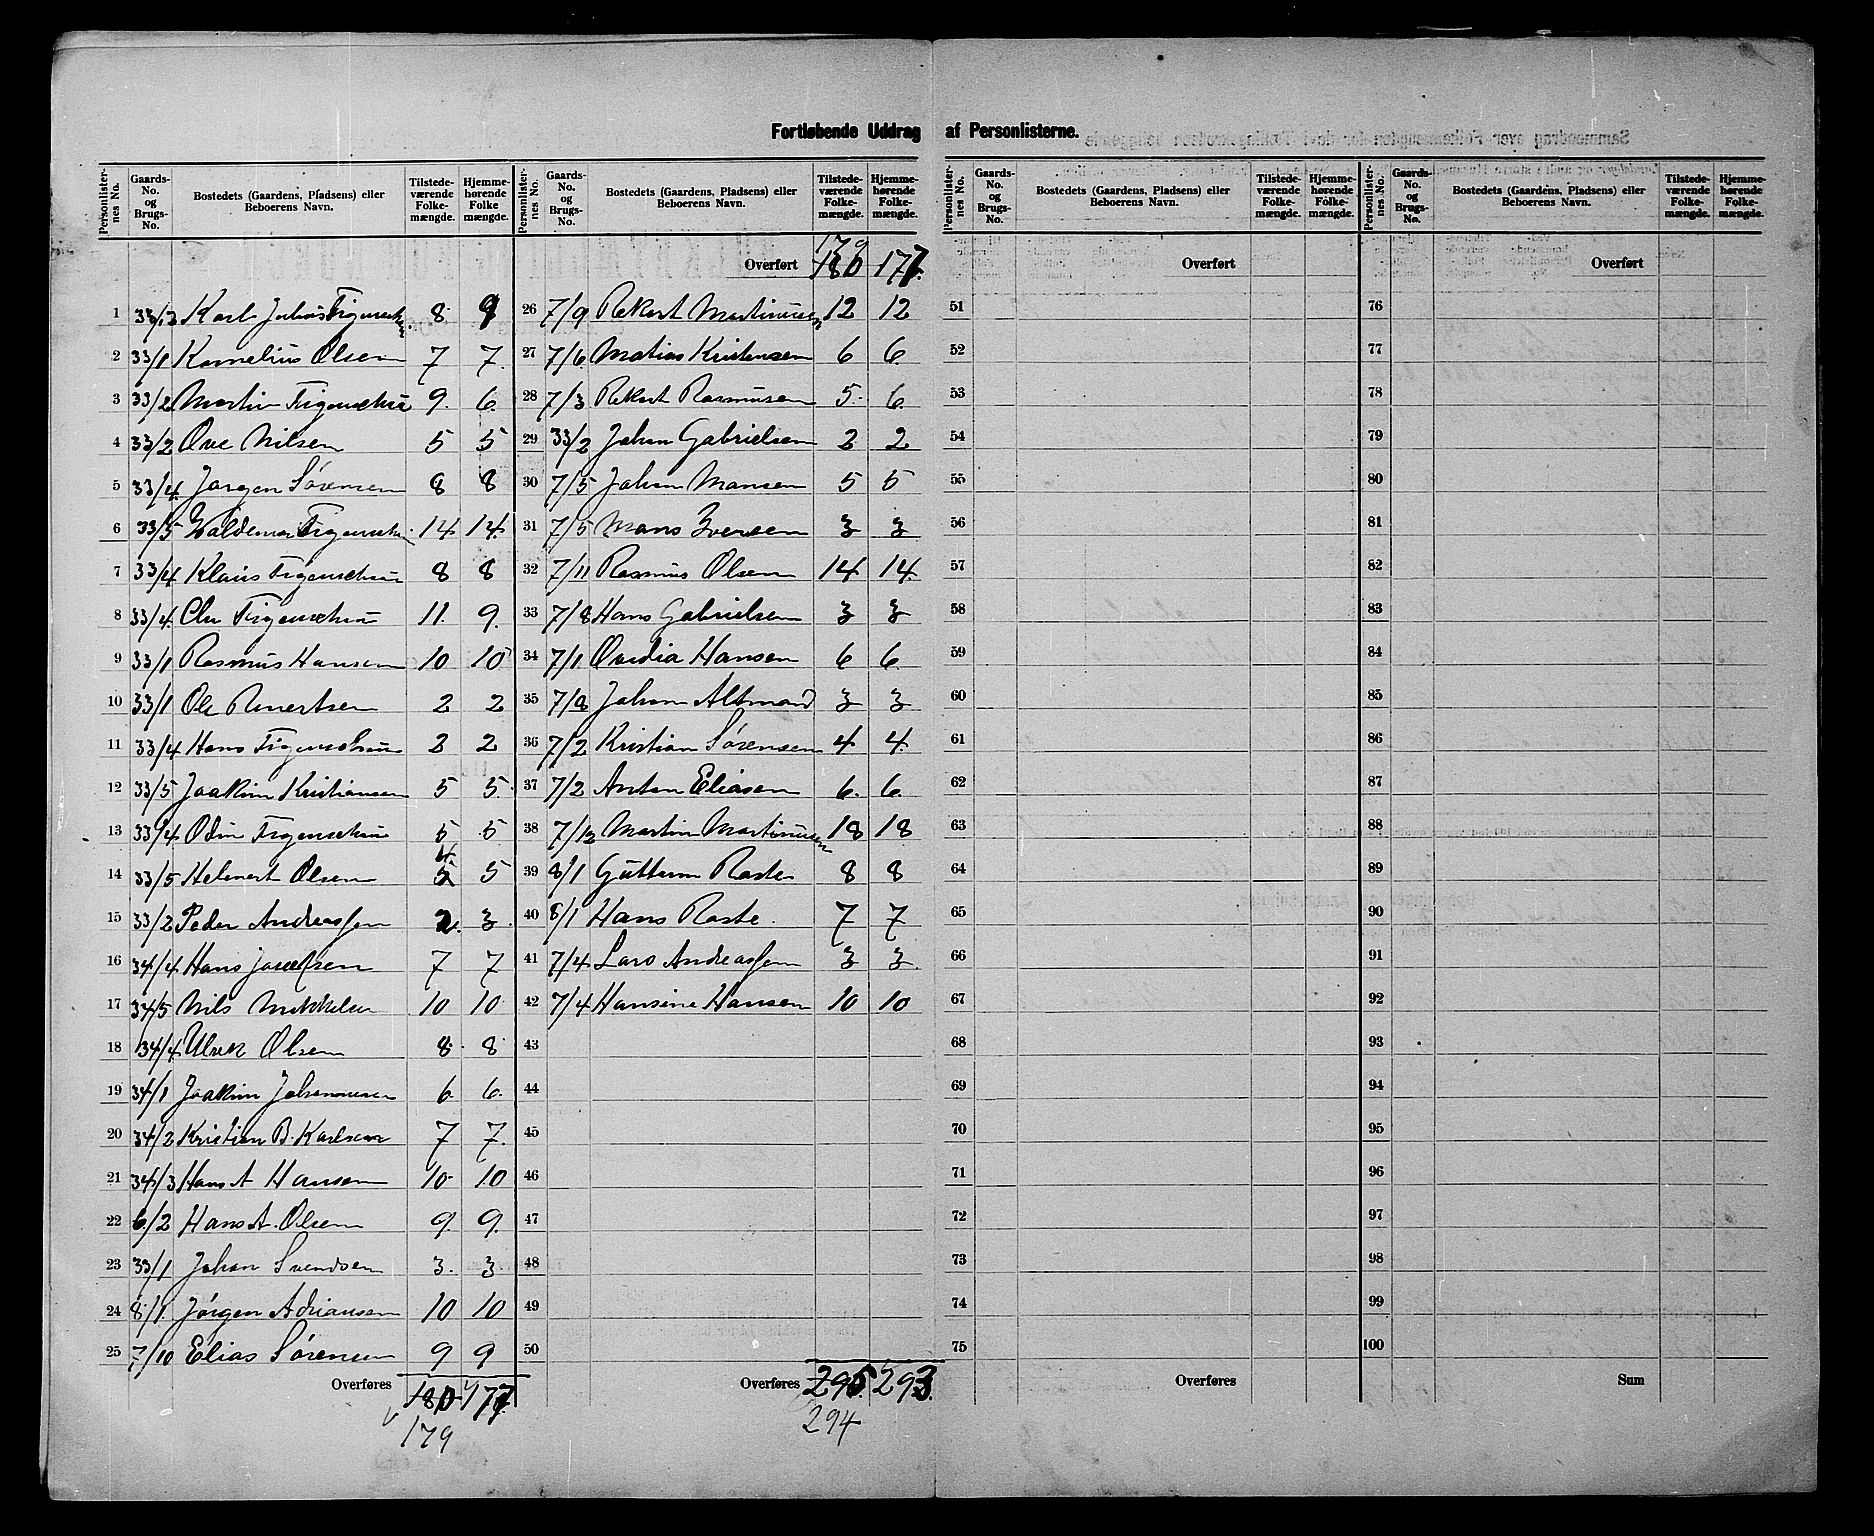 Fortløbende Uddrag af Personlisterne.
Personlister-nes No. Gaards-No. og Brugs-No. Bostedets (Gaardens, Pladsens) eller Beboerens Navn. Tilstede-værende Folke-mængde. Hjemme-hørende Folke mængde.
1 33/13 Karl Julius 8 9
2 33/1 Kornelius Olsen 7 7
3 33/2 Martin 9 6
4 33/2 Ove Nilsen 5 5
5 33/4 Jørgen Sørensen 8 8
6 33/5 Valdemar 14 14
7 33/4 Klaus 8 8
8 33/4 11 9
9 33/1 Rasmus Hansen 10 10
10 33/1 Ole 2 2
11 33/4 Hans 2 2
12 33/5 Joakim Kristiansen 5 5
13 33/4 Odin 5 5
14 33/5 Helmert Olsen 4 5
15 33/2 Peder Andreassen 2 3
16 34/4 Hans Josefsen 7 7
17 34/5 Nils Mikkelsen 10 10
18 34/4 Olsen 8 8
19 34/1 Joakim Johannesen 6 6
20 34/2 Kristian B. Karlsen 7 7
21 34/3 Hans A Hansen 10 10
22 6/2 Hans A. Olsen 9 9
23 33/1 Johan Svendsen 3 3
24 8/1 Jørgen Adriansen 10 10
25 7/10 Elias Sørensen 9 9
Overføres 180 177
179
Personlister-nes No. Gaards-No. og Brugs-No. Bostedets (Gaardens, Pladsens) eller Beboerens Navn. Tilstede-værende Folke-mængde. Hjemme-hørende Folke-mængde.
179
Overført 180 177
26 7/9 Rekart Martinusen 12 12
27 7/6 Matias Kristensen 6 6
28 7/3 Rekart Rasmusen 5 6
29 33/2 Johan Gabrielsen 2 2
30 7/5 Johan Mansen 5 5
31 7/5 Mons Iversen 3 3
32 7/11 Rasmus Olsen 14 14
33 7/8 Hans Gabrielsen 3 3
34 7/1 Ovedia Hansen 6 6
35 7/8 Johan Altmand 3 3
36 7/2 Kristian Sørensen 4 4
37 7/2 Anton Eliasen 6 6
38 7/12 Martin Martinusen 18 18
39 8/1 Guttorm Raste 8 8
40 8/1 Hans Raste 7 7
41 7/4 Lars Andreassen 3 3
42 7/4 Hansine Hansen 10 10
43
44
45
46
47
48
49
50
Overføres 295 293
294
Personlister-nes No. Gaards-No. og Brugs-No. Bostedets (Gaardens, Pladsens) eller Beboerens Navn. Tilstede-værende Folke-mængde. Hjemme-hørende Folke-mængde.
Overført
51
52
53
54
55
56
57
58
59
60
61
62
63
64
65
66
67
68
69
70
71
72
73
74
75
Overføres
Personlister-nes No. Gaards-No. og Brugs-No. Bostedets (Gaardens, Pladsens) eller Beboerens Navn. Tilstede-værende Folke-mængde. Hjemme-hørende Folke-mængde.
Overført
76
77
78
79
80
81
82
83
84
85
86
87
88
89
90
91
92
93
94
95
96
97
98
99
100
Sum